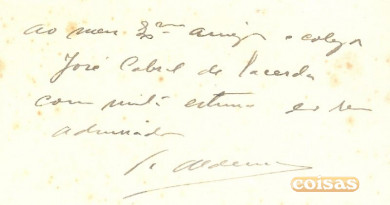 ao meu Exmo amigo e colega
José Cabral de Lacerda
com muita estima e seu
admirador
coisas